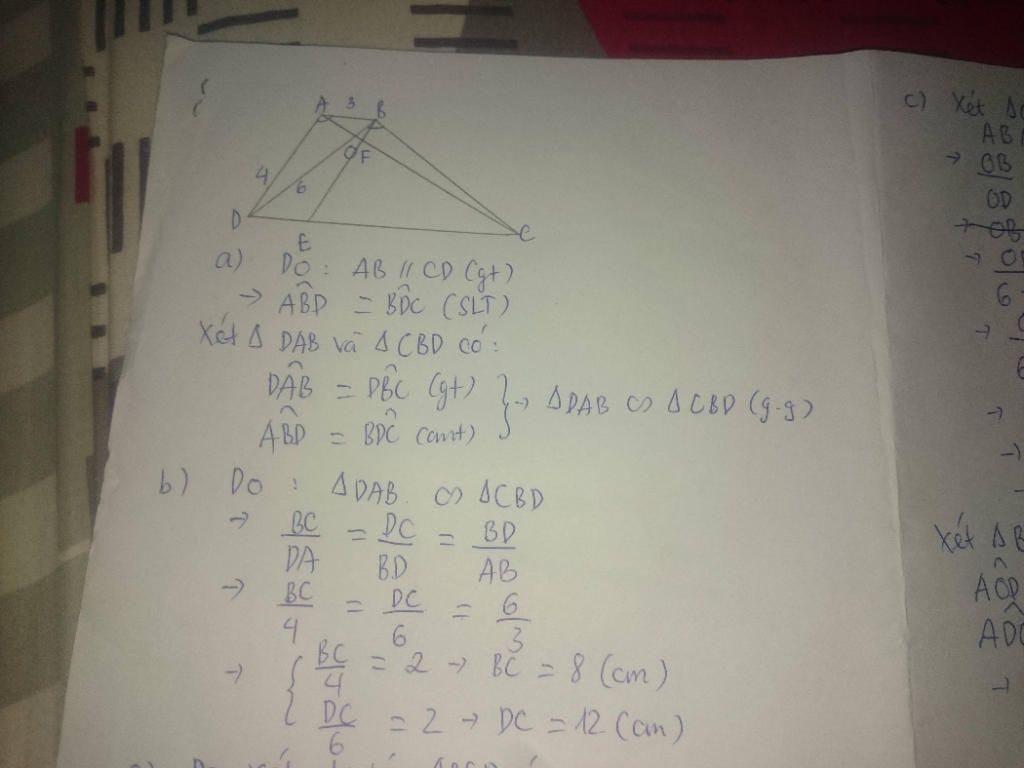 A 3 B
O F
4 6
D
E C
a) Do : AB // CD (gt)
→ ABD̂ = BDĈ (SLT)
Xét Δ DAB và Δ CBD có:
DÂB = DB̂C (gt)
AB̂D = BD̂C (cmt)
} → Δ DAB ∽ Δ CBD (g-g)
b) Do : Δ DAB ∽ Δ CBD
→ BC/DA = DC/BD = BD/AB
→ BC/4 = DC/6 = 6/3
→ { BC/4 = 2 → BC = 8 (cm)
DC/6 = 2 → DC = 12 (cm)
c) Xét Δ
AB
→ OB
OD
→ OB
→
6
→
6
→
→
Xét Δ B
AÔD
AD̂
→